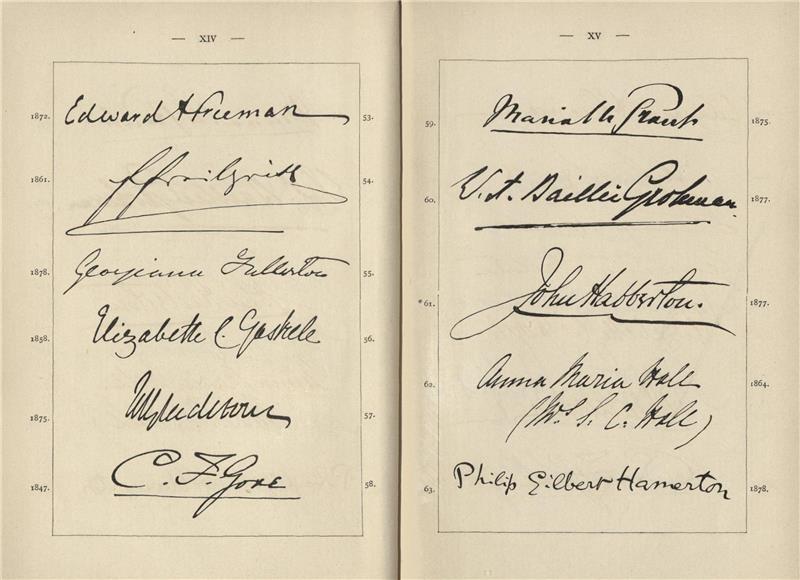 — XIV —
1872. Edward A Freeman 53.
1861. 54.
1878. Georgiana Fullerton 55.
1858. Elizabeth C. Gaskell 56.
1875. WEGladstone 57.
1847. C. F. Gore 58.
— XV —
59. Maria M Grant 1875.
60. W. A. Baillie Grohman. 1877.
*61. John Habberton. 1877.
62. Anna Maria Hall 1864.
(Mrs S. C. Hall)
63. Philip Gilbert Hamerton 1878.